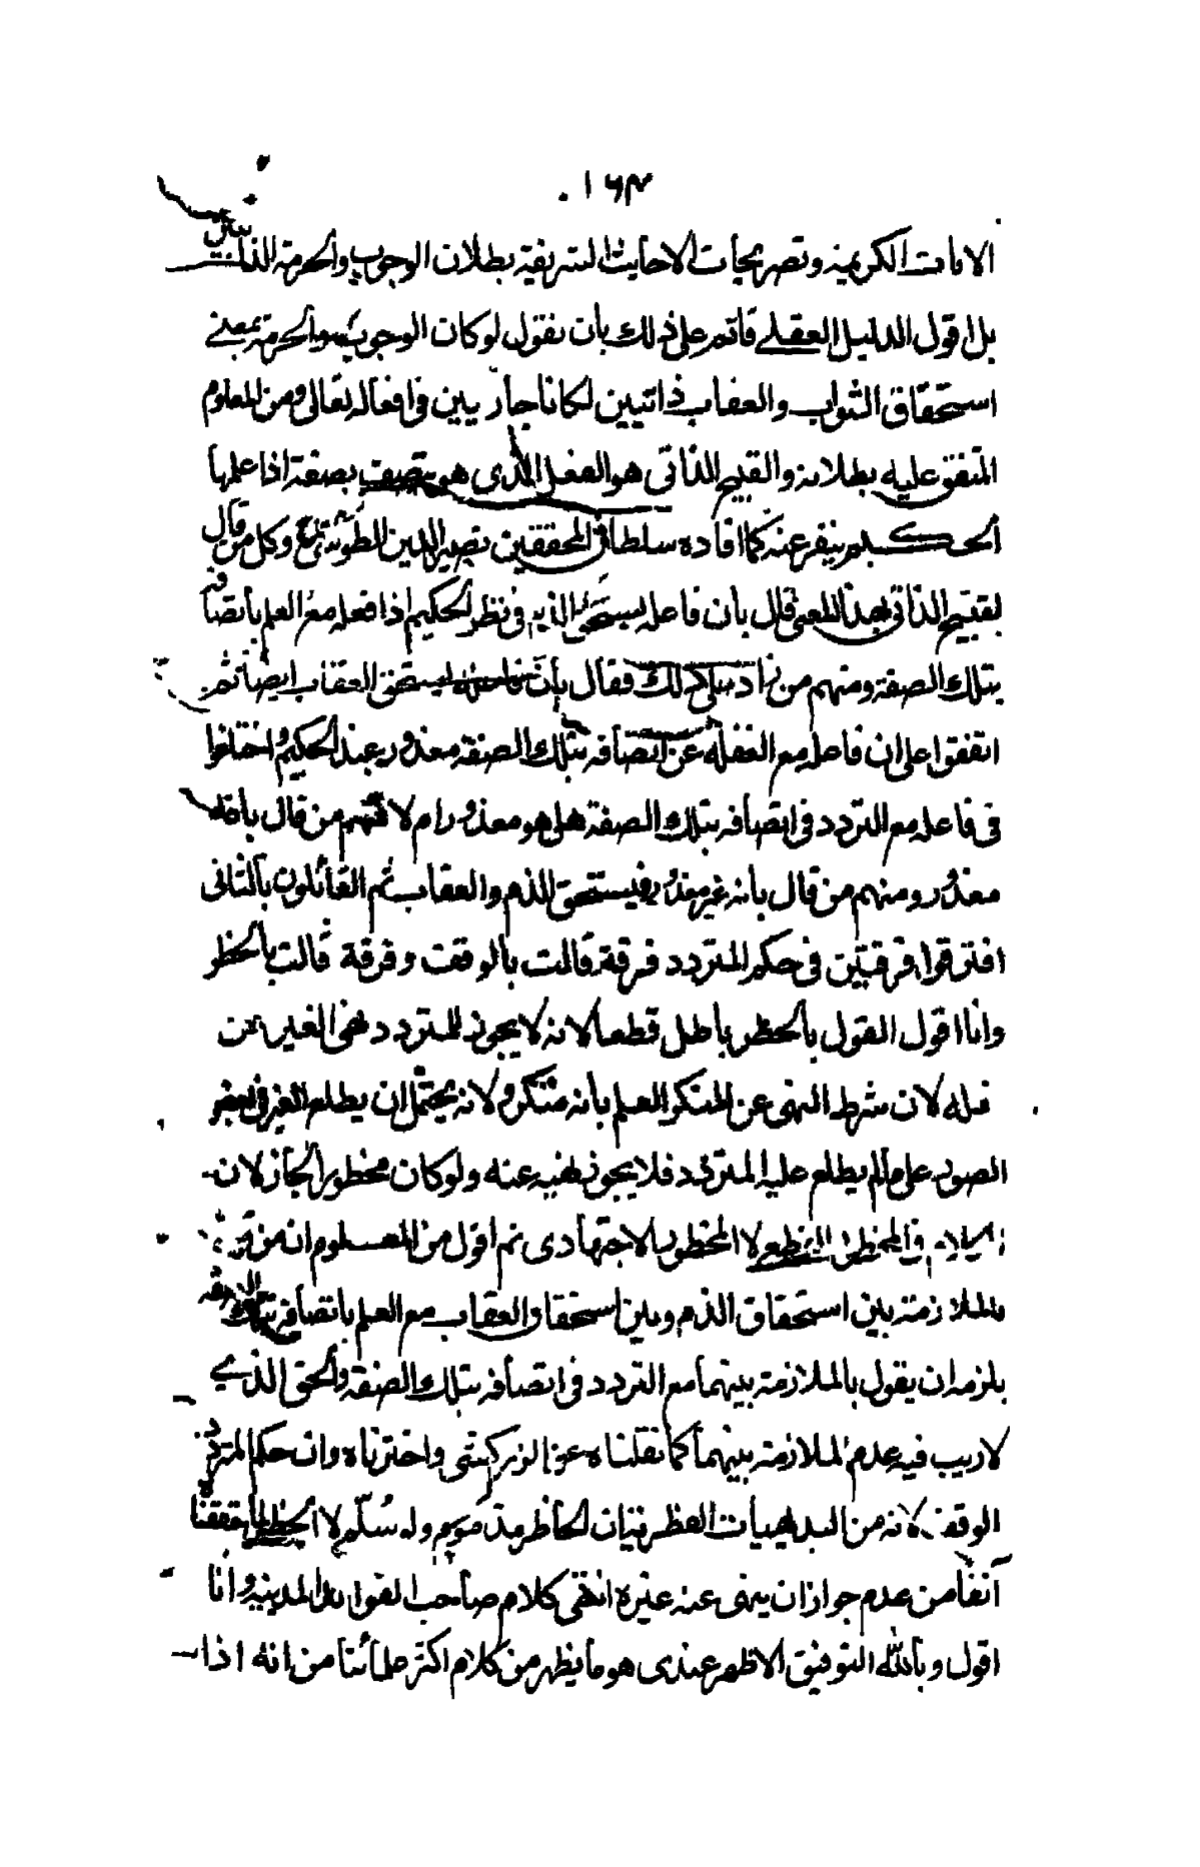 ١٦٣
الايات الكريمة وتصريحات الاحاديث الشريفة بطلان الوجوب والحرمة الذاتيين
بل اقول الدليل العقلي قائم على ذلك بان نقول لو كان الوجوب والحرمة بمعنى
استحقاق الثواب والعقاب ذاتيين لكانا جاريين في افعاله تعالى ومن المعلوم
المتفق عليه بطلانه والقبيح الذاتي هو الفعل الذي هو متصف بصفة اذا علمها
الحكيم ينفر عنه كما افاده سلطان المحققين نصير الدين الطوسي وكل من قال
بقبيح الذاتي بهذا المعنى قال بان فاعله يستحق الذم في نظر الحكيم اذا فعله مع العلم باتصافه
بتلك الصفة ومنهم من زاد على ذلك فقال بان فاعله يستحق العقاب ايضا ثم
اتفقوا على ان فاعله مع الغفلة عن اتصافه بتلك الصفة معذور عند الحكيم واختلفوا
في فاعله مع التردد في اتصافه بتلك الصفة هل هو معذور ام لا فمنهم من قال بانه
معذور ومنهم من قال بانه غير معذور فيستحق الذم والعقاب ثم القائلون بالثانى
افترقوا فرقتين في حكم المتردد فرقة قالت بالوقف وفرقة قالت بالحظر
وانا اقول القول بالحظر باطل قطعا لانه لا يجوز للمتردد نهى الغير عن
فعله لان شرط النهى عن المنكر العلم بانه منكر ولانه يحتمل ان يطلع الغير في بعض
الصور على ما لم يطلع عليه المتردد فلا يجوز نهيه عنه ولو كان محظورا لجاز لان
في المحظور القطعى لا المحظور الاجتهادى ثم اقول من المعلوم ان من
بالملازمة بين استحقاق الذم وبين استحقاق العقاب مع العلم باتصافه بتلك الصفة
يلزمه ان يقول بالملازمة بينهما مع التردد في اتصافه بتلك الصفة والحق الذي
لا ريب فيه عدم الملازمة بينهما كما نقلناه عن الزركشى واخترناه وان حكم المتردد
الوقف لانه من البديهيات ان الحاظر ولو سلم لا الحظر لما حققنا
آنفا من عدم جواز ان ينهى عنه غيره انتهى كلام صاحب الفوائد المدينة وانا
اقول وبالله التوفيق الاظهر عندى هو ما يظهر من كلام اكثر علمائنا من انه اذا